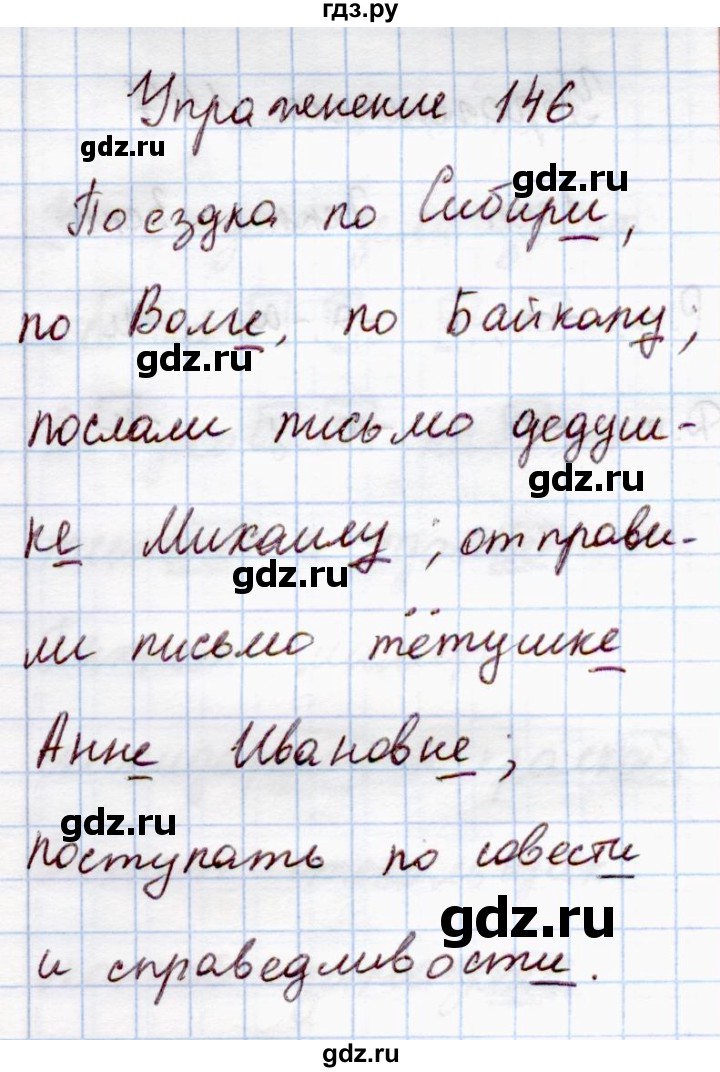 гдз.ру
Упражнение 146
gdz.ru
gdz.ru
Поездка по Сибири,
по Волге, по Байкалу;
gdz.ru
послали письмо дедуш-
gdz.ru
ке Михаилу; отправи-
gdz.ru
ли письмо тётушке
Анне Ивановне;
gdz.ru
поступать по совести
gdz.ru
и справедливости.
gdz.ru